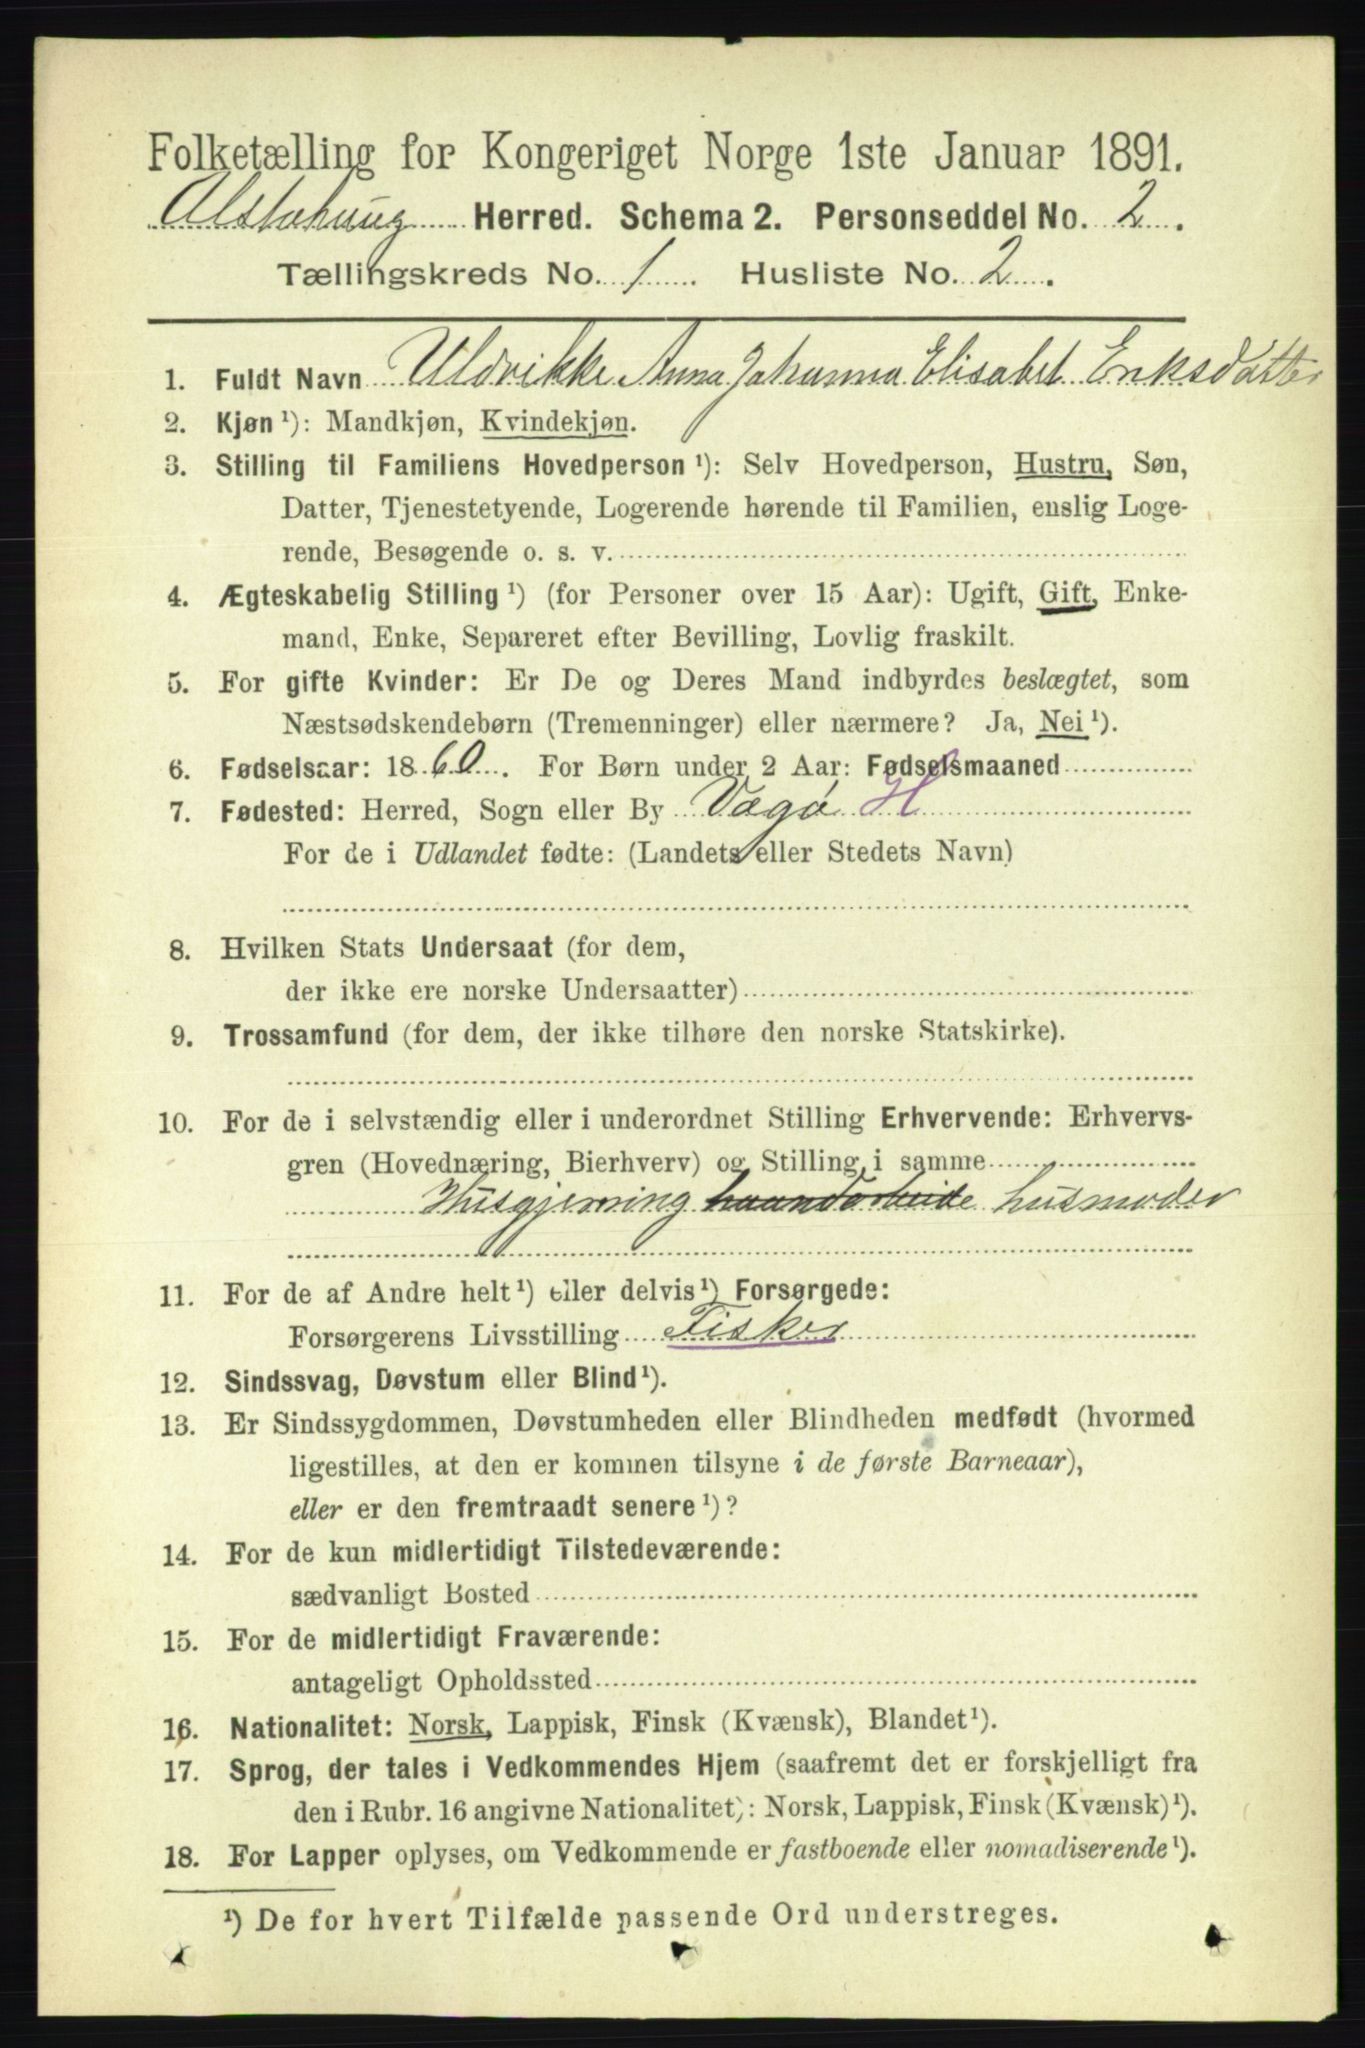 Folketælling for Kongeriget Norge 1ste Januar 1891.
Alstahaug Herred. Schema 2. Personseddel No. 2.
Tællingskreds No. 1 Husliste No. 2.
1. Fuldt Navn Uldrikke Anna Johanna Elisabet Eriksdatter
2. Kjøn ¹): Mandkjøn, Kvindekjøn.
3. Stilling til Familiens Hovedperson ¹): Selv Hovedperson, Hustru, Søn,
Datter, Tjenestetyende, Logerende hørende til Familien, enslig Loge-
rende, Besøgende o. s. v.
4. Ægteskabelig Stilling ¹) (for Personer over 15 Aar): Ugift, Gift, Enke-
mand, Enke, Separeret efter Bevilling, Lovlig fraskilt.
5. For gifte Kvinder: Er De og Deres Mand indbyrdes beslægtet, som
Næstsødskendebørn (Tremenninger) eller nærmere? Ja, Nei ¹).
6. Fødselsaar: 1860. For Børn under 2 Aar: Fødselsmaaned
7. Fødested: Herred, Sogn eller By Vægø H
For de i Udlandet fødte: (Landets eller Stedets Navn)
8. Hvilken Stats Undersaat (for dem,
der ikke ere norske Undersaatter)
9. Trossamfund (for dem, der ikke tilhøre den norske Statskirke).
10. For de i selvstændig eller i underordnet Stilling Erhvervende: Erhvervs-
gren (Hovednæring, Bierhverv) og Stilling i samme
Husgjerning haandarbeide husmoder
11. For de af Andre helt ¹) eller delvis ¹) Forsørgede:
Forsørgerens Livsstilling Fisker
12. Sindssvag, Døvstum eller Blind ¹).
13. Er Sindssygdommen, Døvstumheden eller Blindheden medfødt (hvormed
ligestilles, at den er kommen tilsyne i de første Barneaar),
eller er den fremtraadt senere ¹)?
14. For de kun midlertidigt Tilstedeværende:
sædvanligt Bosted
15. For de midlertidigt Fraværende:
antageligt Opholdssted
16. Nationalitet: Norsk, Lappisk, Finsk (Kvænsk), Blandet ¹).
17. Sprog, der tales i Vedkommendes Hjem (saafremt det er forskjelligt fra
den i Rubr. 16 angivne Nationalitet): Norsk, Lappisk, Finsk (Kvænsk) ¹).
18. For Lapper oplyses, om Vedkommende er fastboende eller nomadiserende ¹).
¹) De for hvert Tilfælde passende Ord understreges.